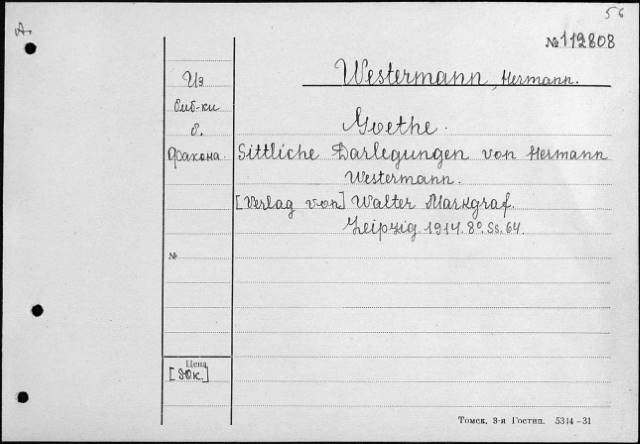 56
A.
№ 112808
Westermann, Hermann.
Из
биб-ки
б.
Фракона.
Goethe.
Sittliche Darlegungen von Hermann
Westermann.
[Verlag von] Walter Markgraf.
Leipzig 1914. 8º. Ss. 64.
№
Цена
Томск, 3-я Гостип. 5314-31